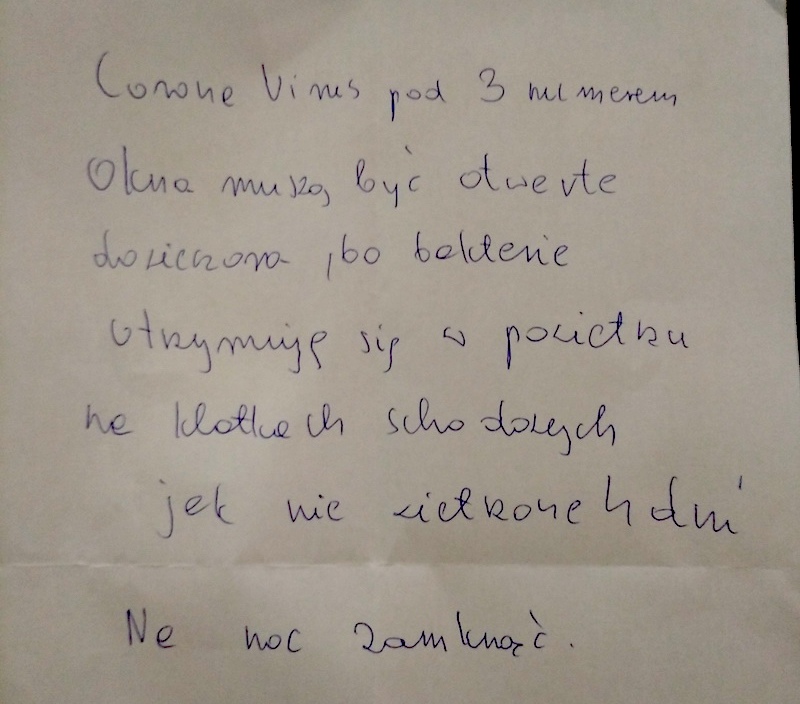 Corona Virus pod 3 numerem
Okna muszą być otwarte
do wieczora, bo bakterie
utrzymują się w powietrzu
na klatkach schodowych
jak nie wietrzone 4 dni
Na noc zamknąć.